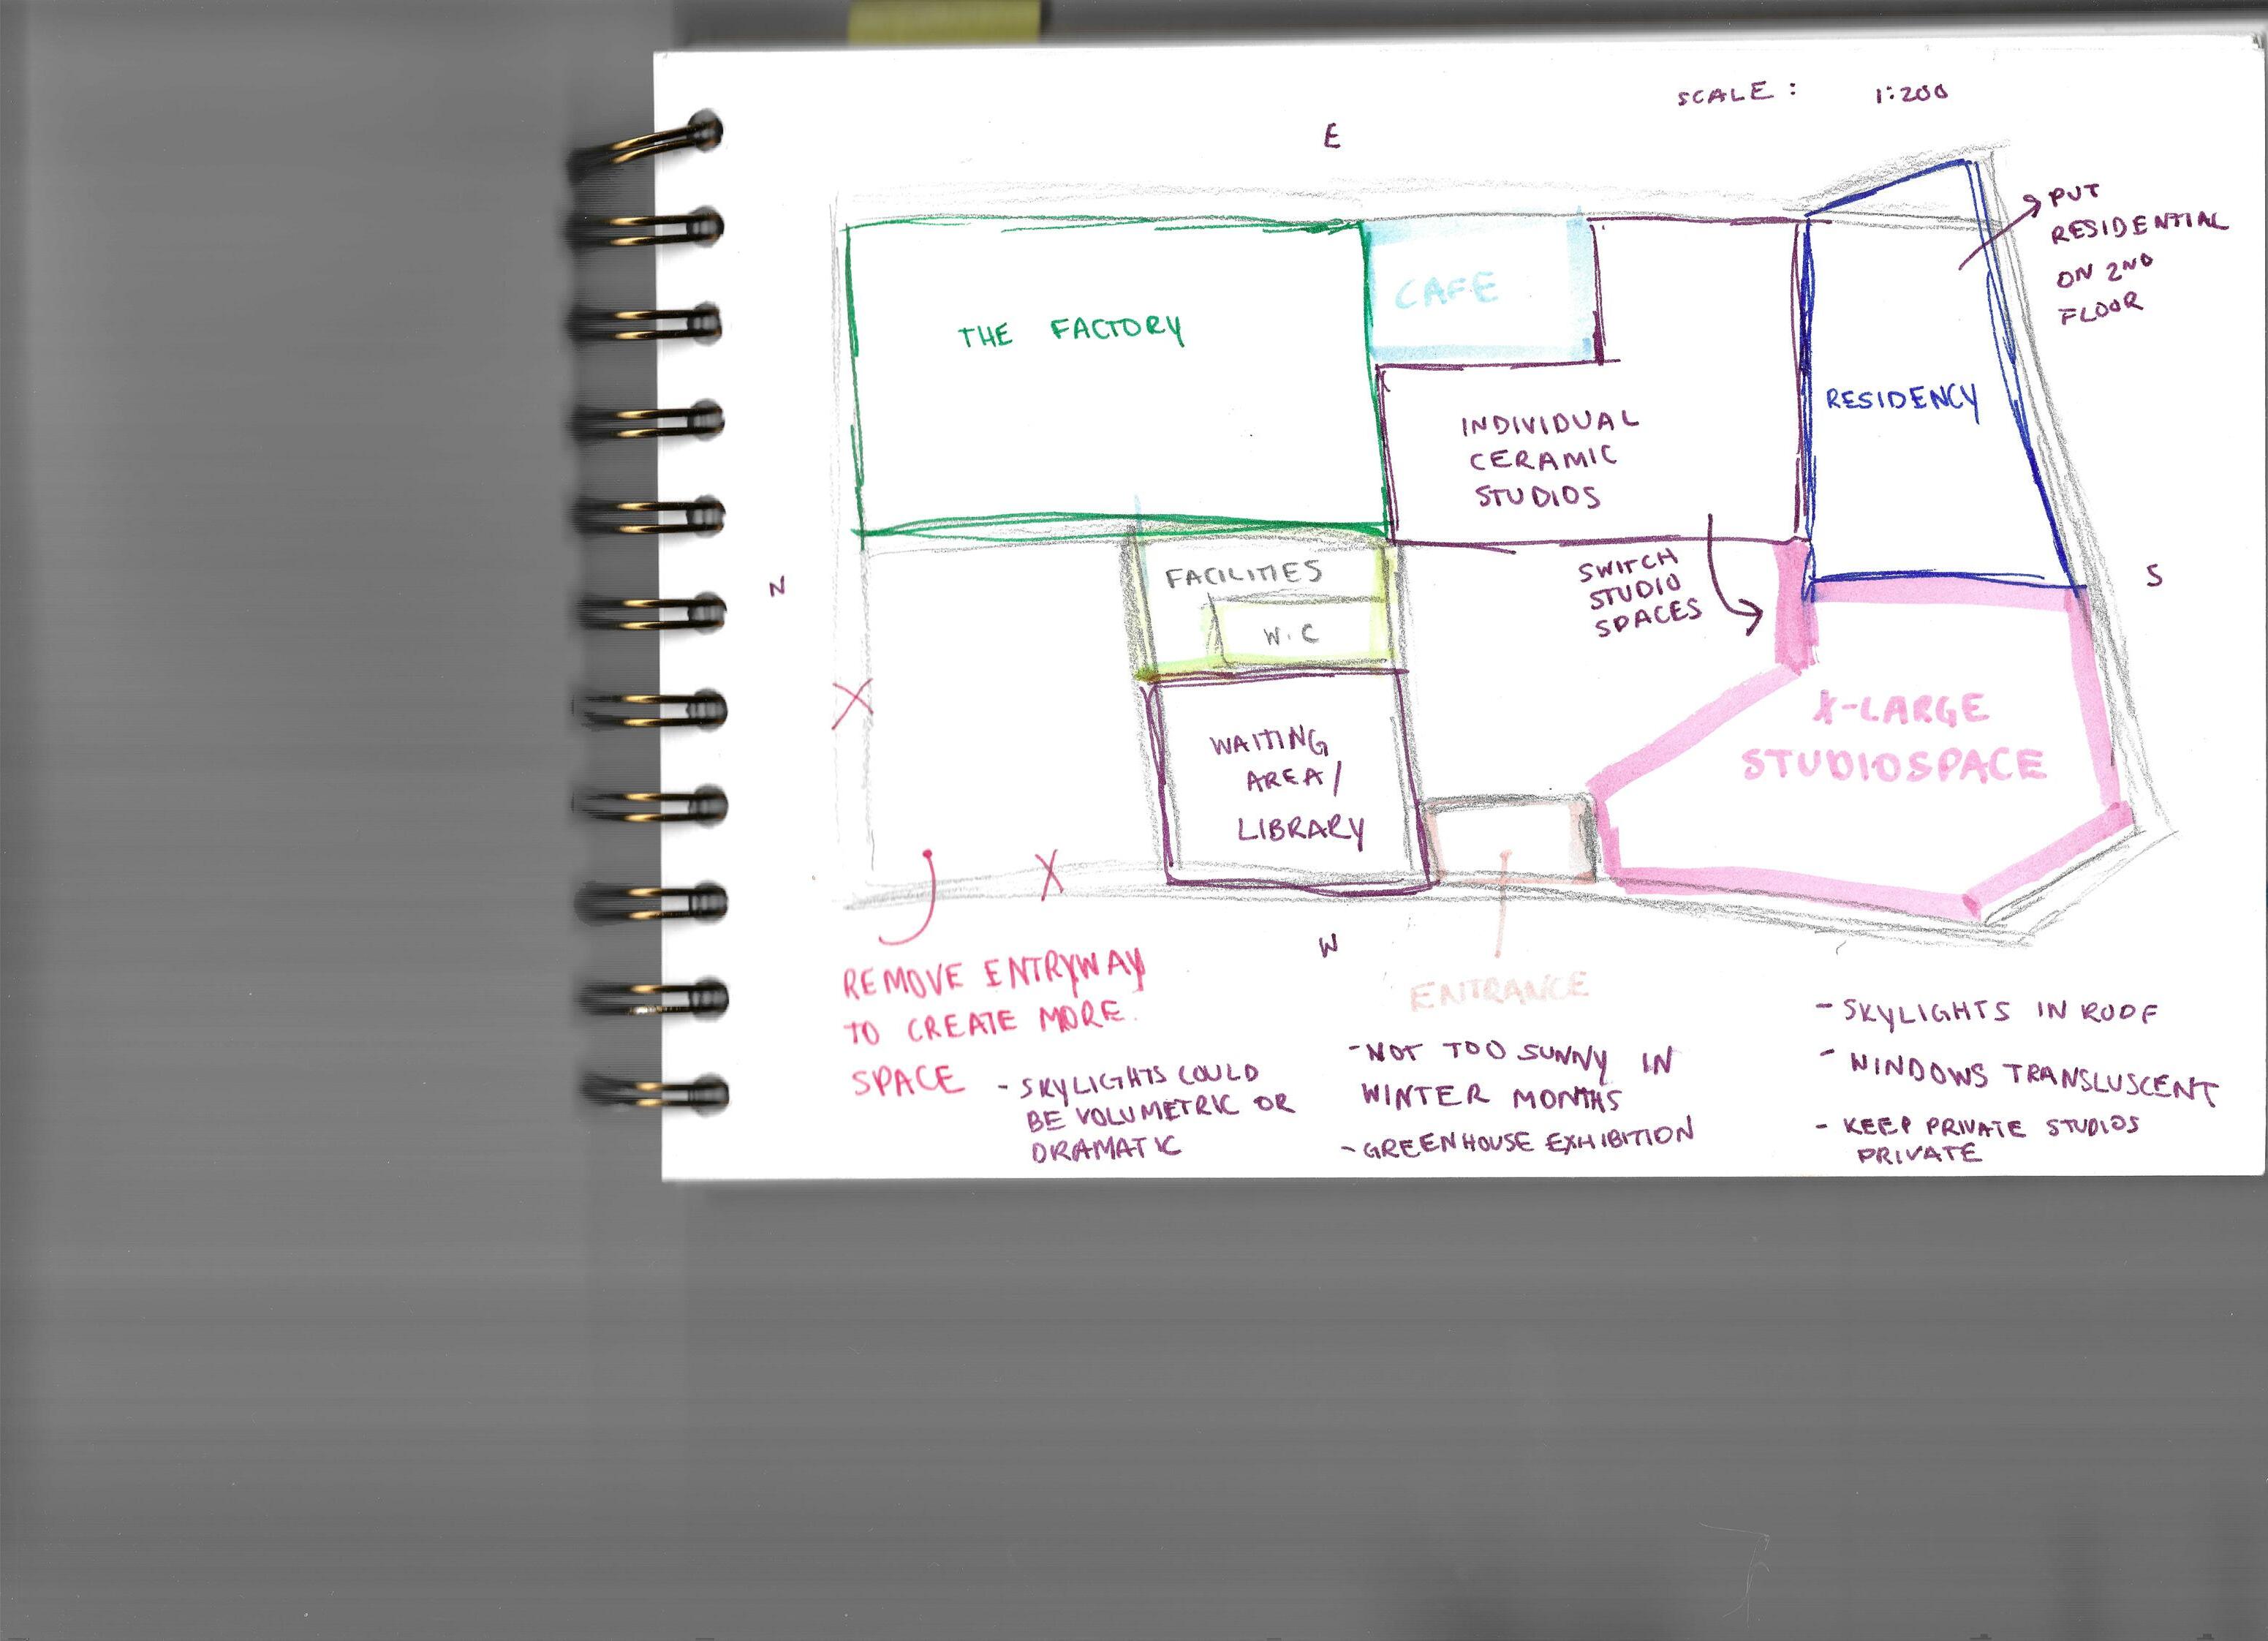 SCALE : 1:200
E
PUT
RESIDENTIAL
ON 2ND
FLOOR
CAFE
THE FACTORY
RESIDENCY
INDIVIDUAL
CERAMIC
STUDIOS
SWITCH
STUDIO
SPACES
N
S
FACILITIES
W.C
X-LARGE
STUDIOSPACE
WAITING
AREA/
LIBRARY
X
X
W
ENTRANCE
REMOVE ENTRYWAY
TO CREATE MORE.
SPACE
- SKYLIGHTS COULD
BE VOLUMETRIC OR
DRAMATIC
- NOT TOO SUNNY IN
WINTER MONTHS
- GREENHOUSE EXHIBITION
- SKYLIGHTS IN ROOF
- WINDOWS TRANSLUSCENT
- KEEP PRIVATE STUDIOS
PRIVATE